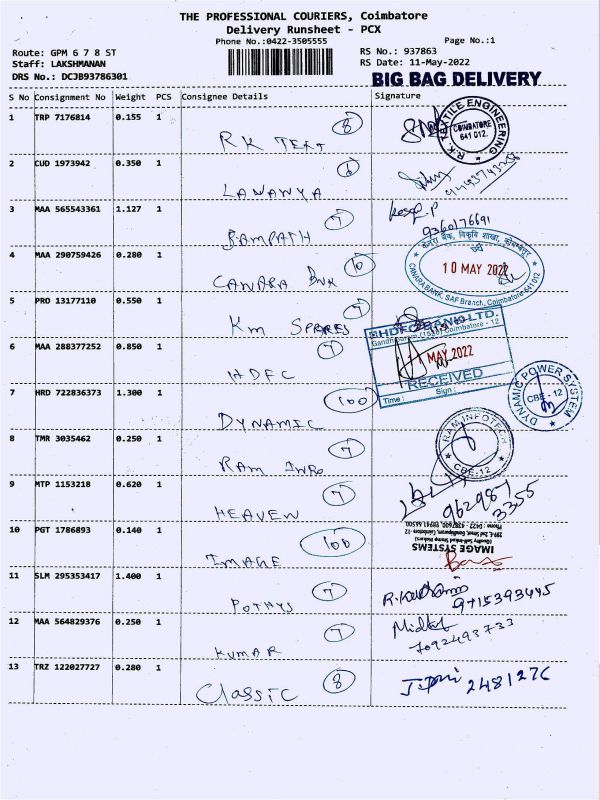 THE PROFESSIONAL COURIERS, Coimbatore
Delivery Runsheet - PCX
Phone No.:0422-3505555
Page No.:1
Route: GPM 6 7 8 ST
RS No.: 937863
Staff: LAKSHMANAN
RS Date: 11-May-2022
DRS No.: DCJB93786301
BIG BAG DELIVERY
S No Consignment No Weight PCS Consignee Details Signature
1 TRP 7176814 0.155 1
RK TEXT 8
R.K. TEXTILE ENGINEERING
COIMBATORE
641 012.
2 CUD 1973942 0.350 1
LAWANYA 6
3 MAA 565543361 1.127 1
SAMPATH 7
9360176691
4 MAA 290759426 0.280 1
CANARA BNK 10
केनरा बैंक
10 MAY 2022
CANARA BANK, SAF Branch, Coimbatore-641 012
5 PRO 13177110 0.550 1
KM SPARES 7
HDFC BANK LTD.
Coimbatore - 12
6 MAA 288377252 0.850 1
HDFC 7
MAY 2022
RECEIVED
Time: Sign:
7 HRD 722836373 1.300 1
DYNAMIC 100
DYNAMIC POWER SYSTEM
CBE - 12
8 TMR 3035462 0.250 1
RAM INFO 7
RAM INFOTECH
CBE-12
9 MTP 1153218 0.620 1
HEAVEN 7
962987
3355
10 PGT 1786893 0.140 1
IMAGE 100
IMAGE SYSTEMS
11 SLM 295353417 1.400 1
POTHYS 7
9715393445
12 MAA 564829376 0.250 1
KUMAR 7
7092493733
13 TRZ 122027727 0.280 1
Classic 8